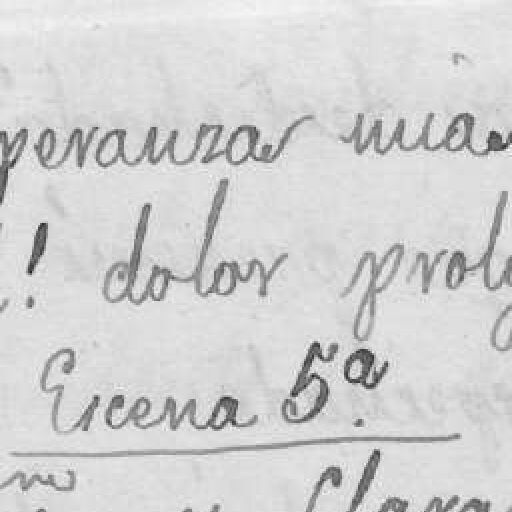 peranzas mias
! dolor prol
Escena 5ª.
Clara